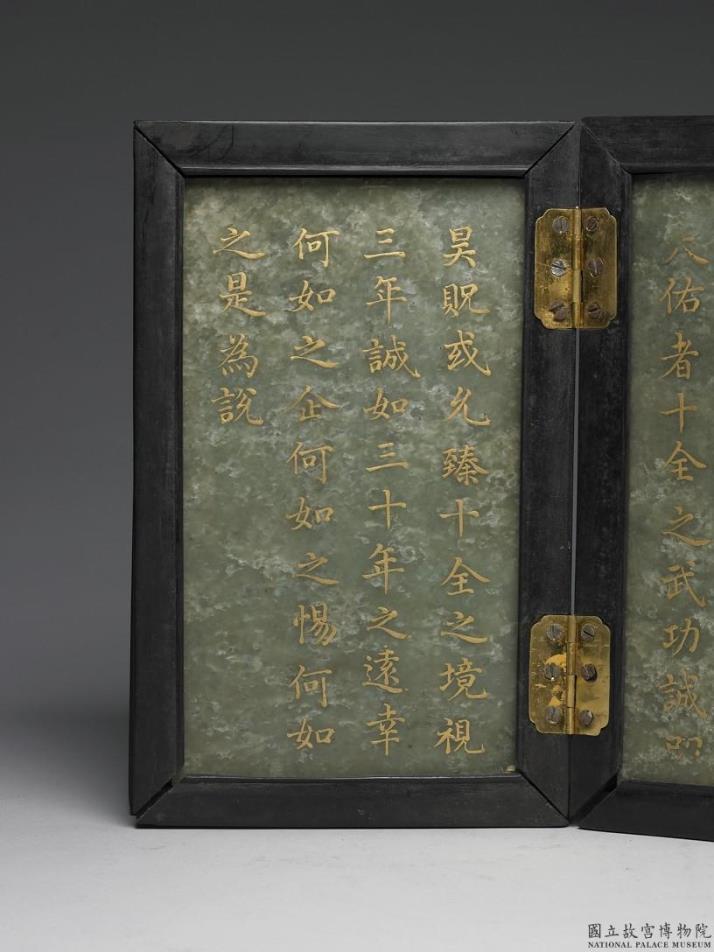 天佑者十全之武功誠叨
昊貺或允臻十全之境視
三年誠如三十年之遠幸
何如之企何如之惕何如
之是為說
國立故宮博物院
NATIONAL PALACE MUSEUM